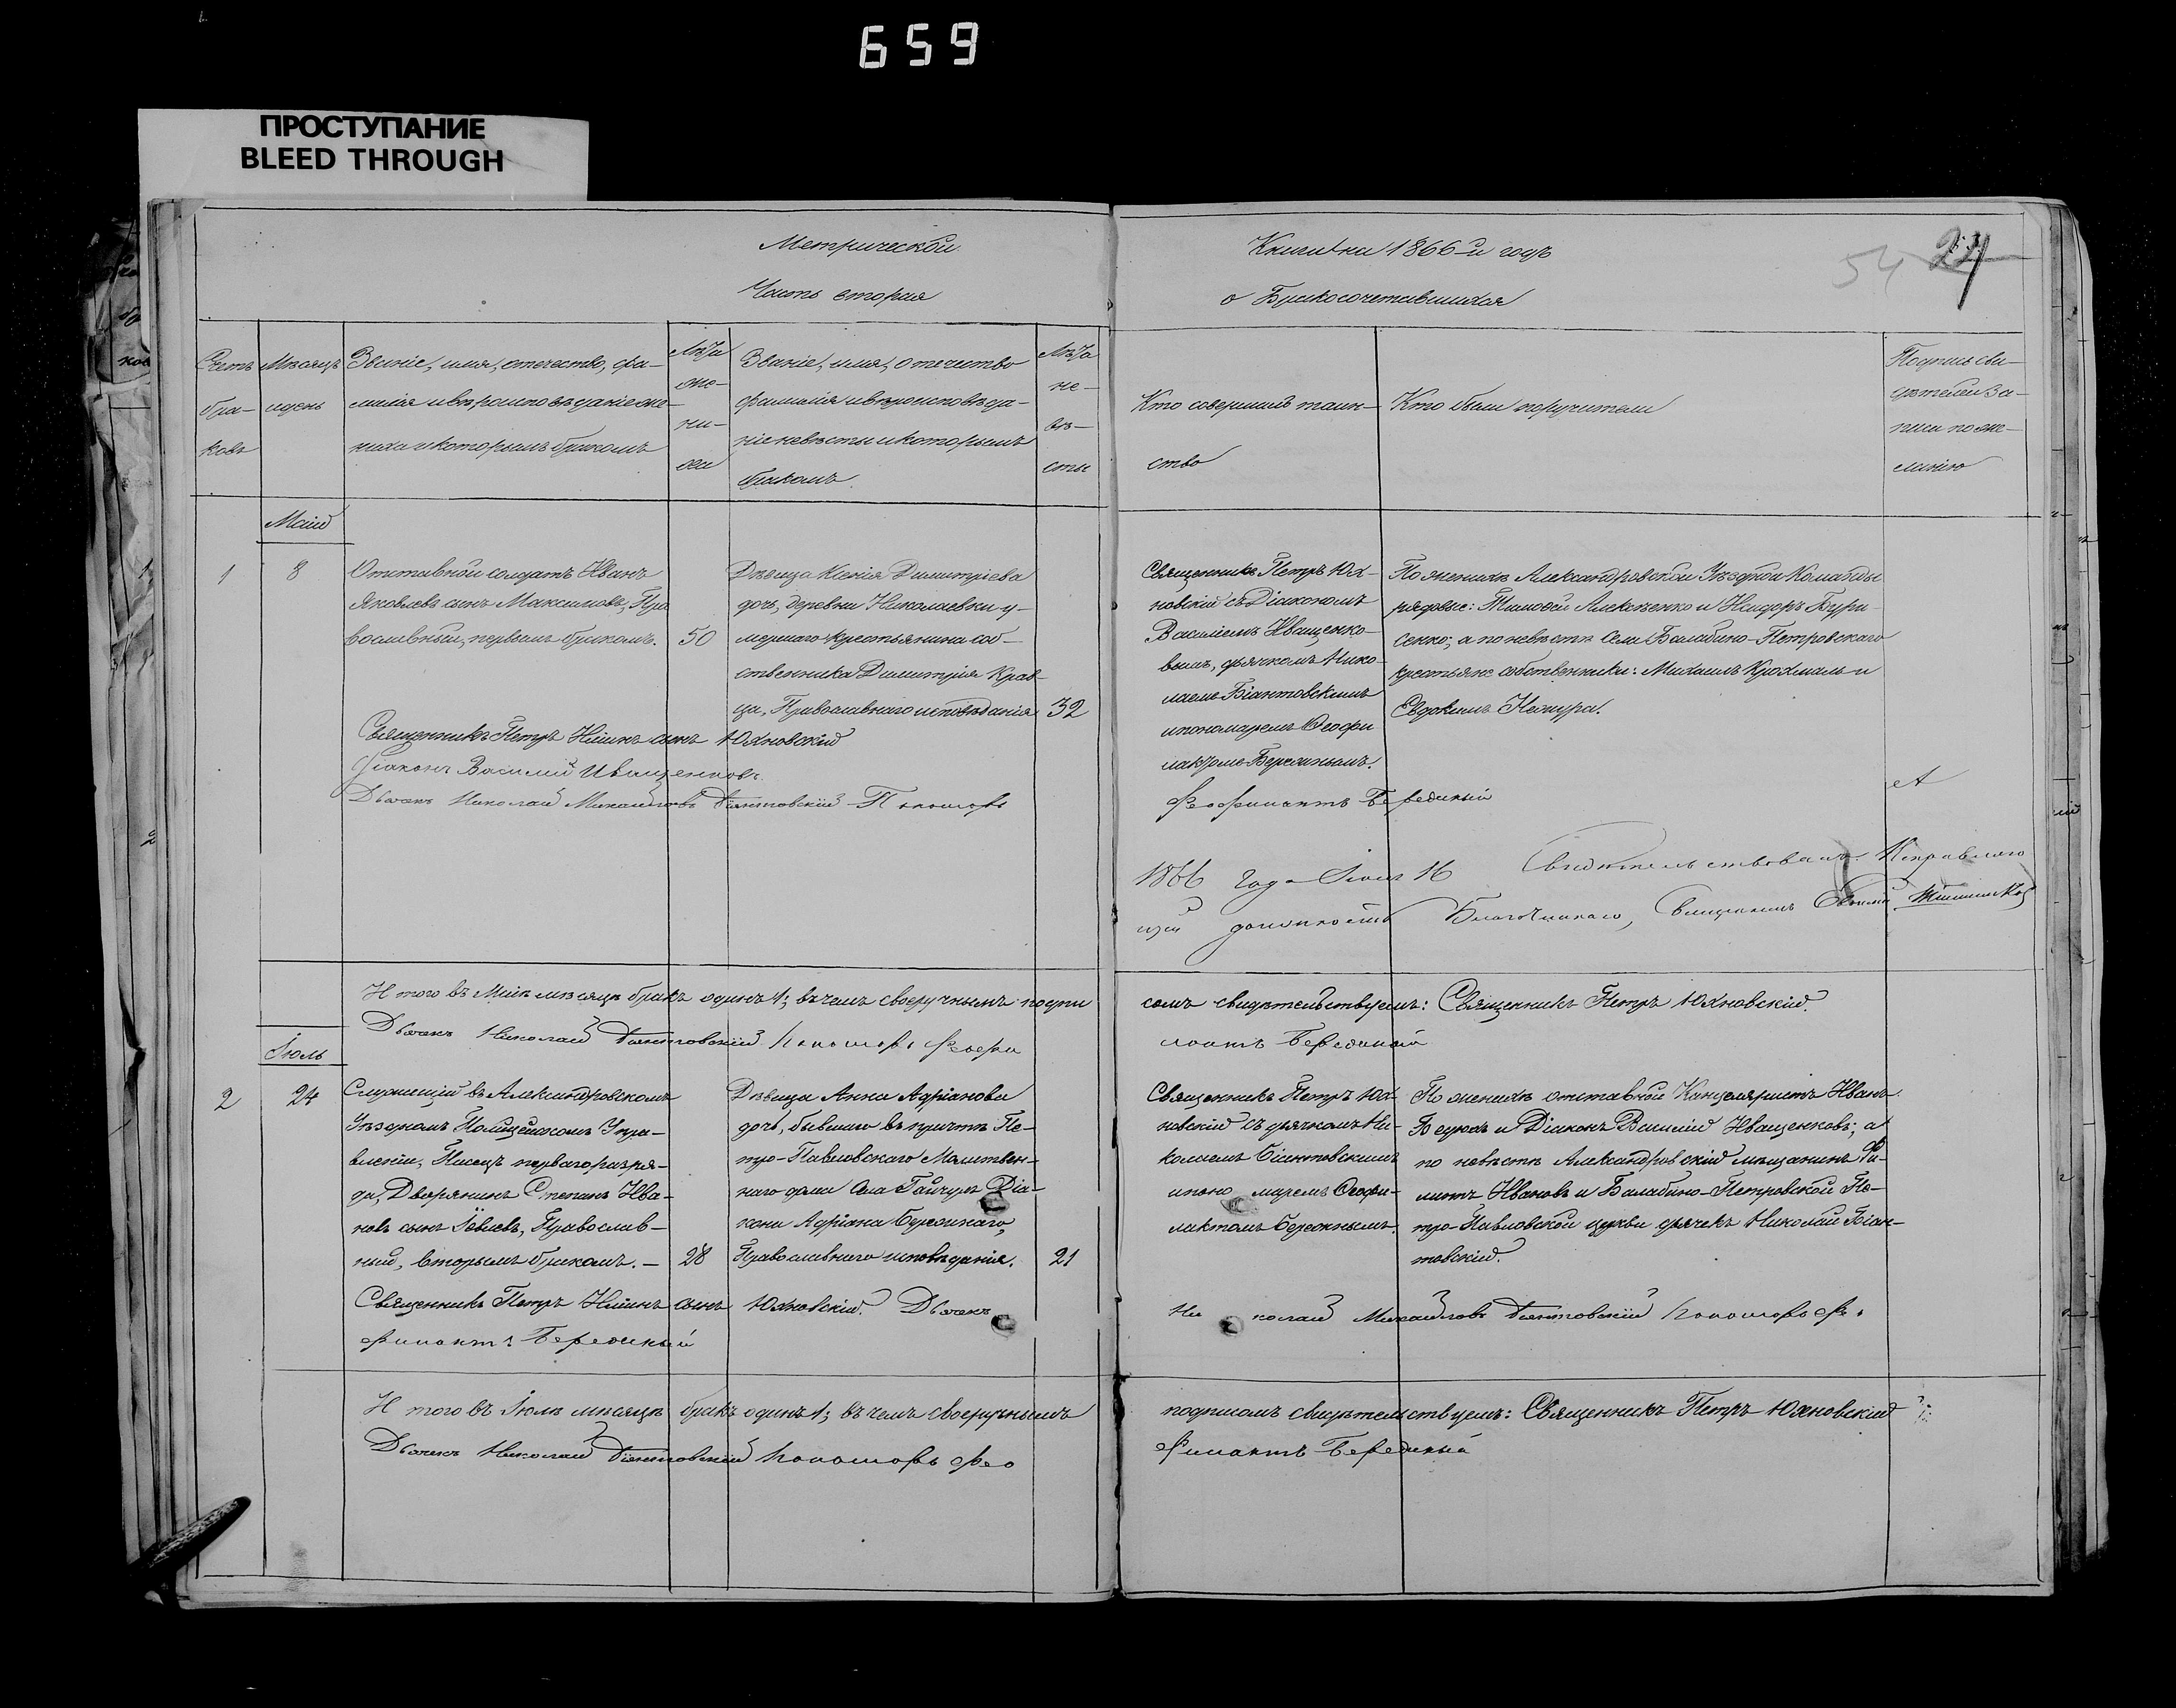 659
ПРОСТУПАНИЕ
BLEED THROUGH
Метрической
Книги на 1866-й годъ
54 27
Часть вторая
о Бракосочетавшихся
Счетъ
бра-
ковъ
Мѣсяцъ
и день
Званіе, имя, отчество, фа-
милія и вѣроисповѣданіе же-
ниха и которымъ бракомъ
Лѣта
же-
ни-
ха
Званіе, имя, отчество
фамилія и вѣроисповѣда-
ніе невѣсты и которымъ
бракомъ
Лѣта
не-
вѣ-
сты
Кто совершилъ таин-
ство
Кто были поручители
Подпись сви-
дѣтелей за-
писи по же-
ланію
Маій
1
8
Отставной солдатъ Иванъ
Яковлевъ сынъ Максимовъ, Пра
вославный, первымъ бракомъ.
50
Дѣвица Ксенія Димитріева
дочь, деревни Николаевки у-
мершаго крестьянина соб-
ственника Димитрія Крав-
ца, Православнаго исповѣданія
32
Священникъ Петръ Юх-
новскій съ Діакономъ
Василіемъ Иващенко-
вымъ, дьячкомъ Нико-
лаемъ Біантовскимъ
и пономаремъ Ѳеофи
лактомъ Бережнымъ.
По женихѣ Александровской Уѣздной Команды
рядовые: Тимофей Алексѣенко и Исидоръ Бури-
сенко; а по невѣстѣ села Балабино-Петровскаго
крестьяне собственники: Михаилъ Крохмаль и
Евдокимъ Непура.
Священникъ Петръ Ніинъ сынъ Юхновскій
Діаконъ Василій Иващенковъ
Дьячекъ Николай Михайловъ Біянтовскій Пономарь
Феофилактъ Бережный
1866 года Іюля 16 Свидѣтельствовалъ Исправляю
щій должность Благочиннаго, Священникъ
И того въ Маіѣ мѣсяцѣ бракъ одинъ 1; въ чемъ своеручнымъ подпи
сомъ свидѣтельствуемъ: Священникъ Петръ Юхновскій.
Дьячекъ Николай Біянтовскій Пономарь Феофи
лактъ Бережный
Іюль
2
24
Служащій въ Александровскомъ
Уѣздномъ Полицейскомъ Упра-
вленіи, Писецъ перваго разря-
да, Дворянинъ Степанъ Ива-
новъ сынъ Іевлевъ, Православ-
ный, вторымъ бракомъ. –
28
Дѣвица Анна Адріанова
дочь, бывшаго въ причтѣ Пе-
тро-Павловскаго Молитвен-
наго дома села Гайчула Діа-
кона Адріана Бережнаго,
Православнаго исповѣданія.
21
Священникъ Петръ Юх-
новскій съ дьячкомъ Ни-
колаемъ Біантовскимъ
и поно маремъ Ѳеофи-
лактомъ Бережнымъ.
По женихѣ отставной Канцеляристъ Иванъ
Бедюхъ и Діаконъ Василій Иващенковъ; а
по невѣстѣ Александровскій мѣщанинъ Фи-
липъ Ивановъ и Балабино-Петровской Пе-
тро-Павловской церкви дьячекъ Николай Біан-
товскій.
Священникъ Петръ Ніинъ сынъ Юхновскій. Дьячекъ
Ни колай Михайловъ Біянтовскій Пономарь Фео
филактъ Бережный
И того въ Іюлѣ мѣсяцѣ бракъ одинъ 1; въ чемъ своеручнымъ
подписомъ свидѣтельствуемъ: Священникъ Петръ Юхновскій
Дьячекъ Николай Біянтовскій Пономарь Фео
филактъ Бережный